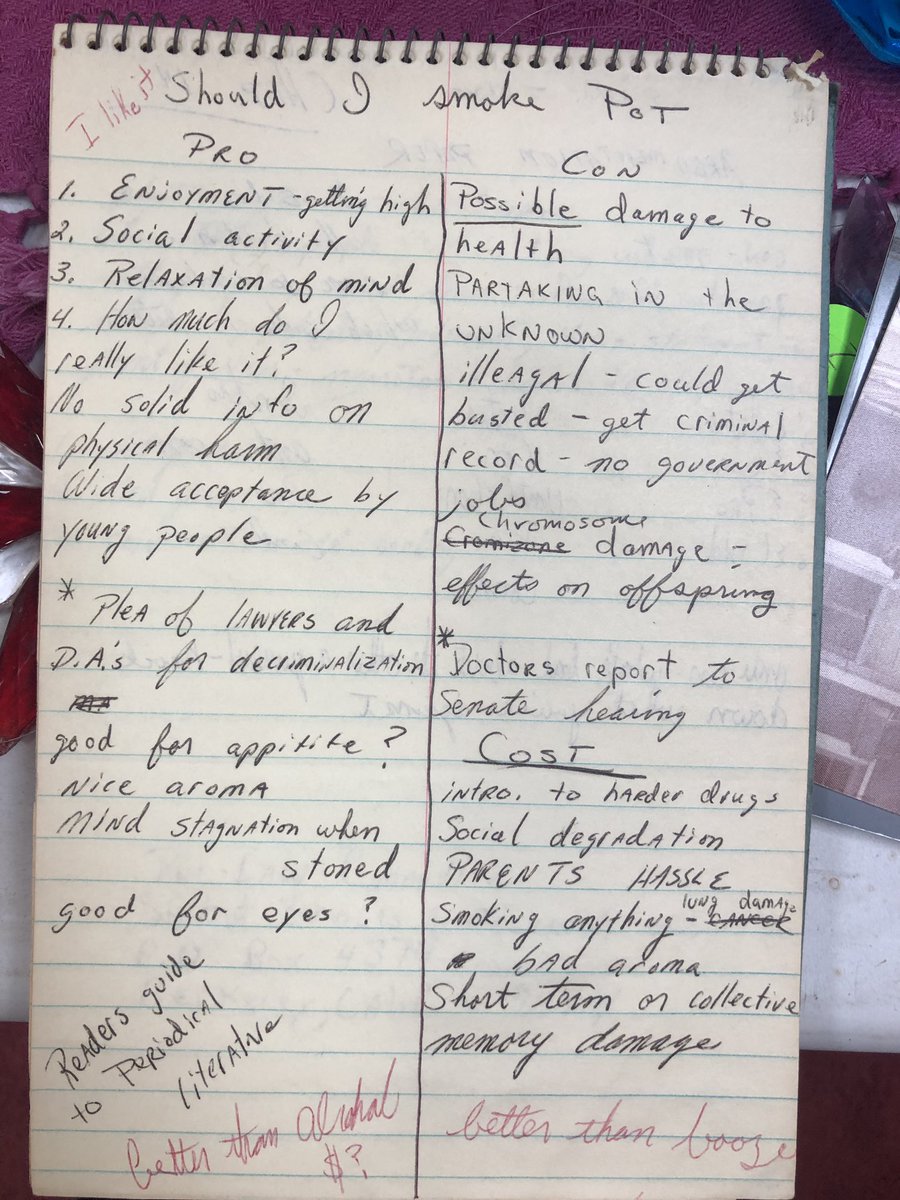 I like it
Should I smoke POT
PRO
1. ENJOYMENT - getting high
2. Social activity
3. Relaxation of mind
4. How much do I
really like it?
No solid info on
physical harm
Wide acceptance by
young people
* Plea of lawyers and
D.A.'s for decriminalization
good for appitite?
Nice aroma
Mind stagnation when
stoned
good for eyes?
Readers guide
to Periodical
literative
better than alcohol
$?
CON
Possible damage to
health
PARTAKING in the
unknown
illeagal - could get
busted - get criminal
record - no government
jobs
Chromosome
Cromizone damage -
effects on offspring
* Doctors report to
Senate hearing
COST
intro. to harder drugs
Social degradation
PARENTS HASSLE
lung damage
Smoking anything - CANCER
bad aroma
Short term or collective
memory damage
better than booze